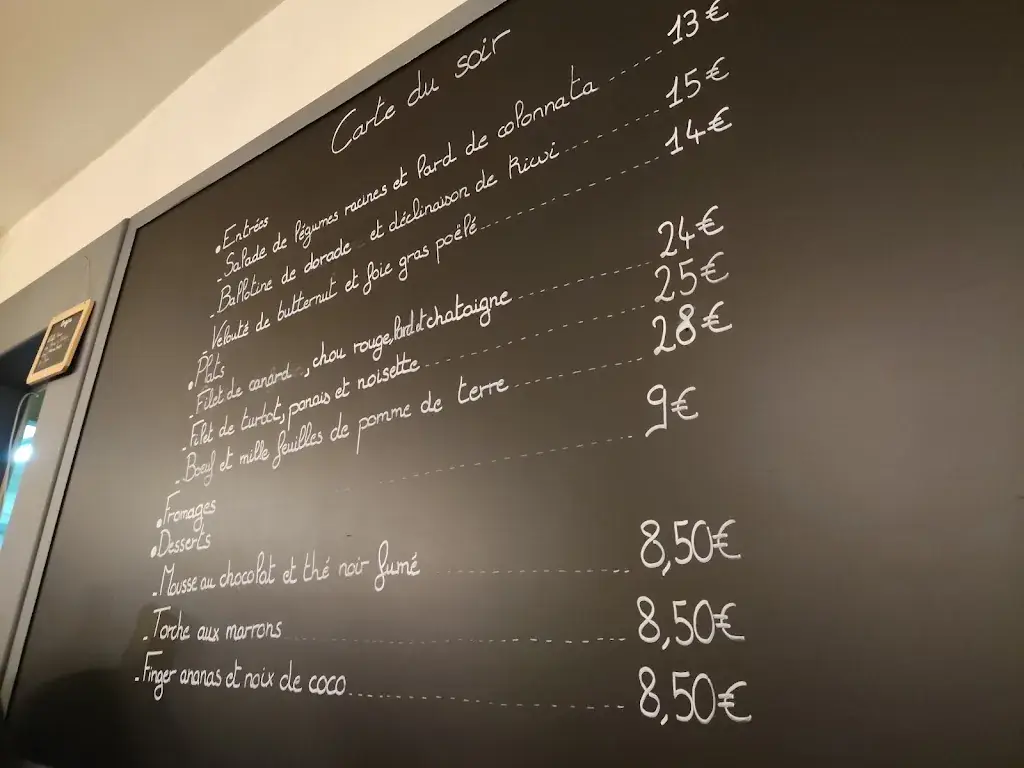 Carte du soir
• Entrées
- Salade de légumes racines et lard de colonnata 13 €
- Ballotine de dorade et déclinaison de kiwi 15 €
- Velouté de butternut et foie gras poêlé 14 €
• Plats
- Filet de canard, chou rouge, lard et chataigne 24 €
- Filet de turbot, panais et noisette 25 €
- Boeuf et mille feuilles de pomme de terre 28 €
• Fromages 9 €
• Desserts
- Mousse au chocolat et thé noir fumé 8,50 €
- Torche aux marrons 8,50 €
- Finger ananas et noix de coco 8,50 €